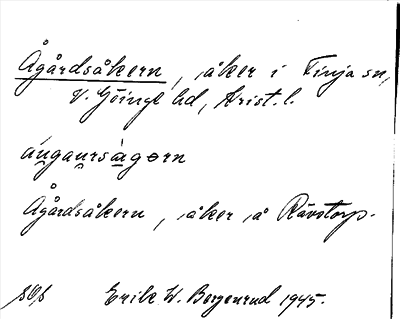 Ågårdsåkern, åker i Finja sn,
V. Göinge hd, Krist. l.
áu̯gau̯rsàgərn
Ågårdsåkern, åker å Rävstorp.
Erik W. Bergenrud 1945.